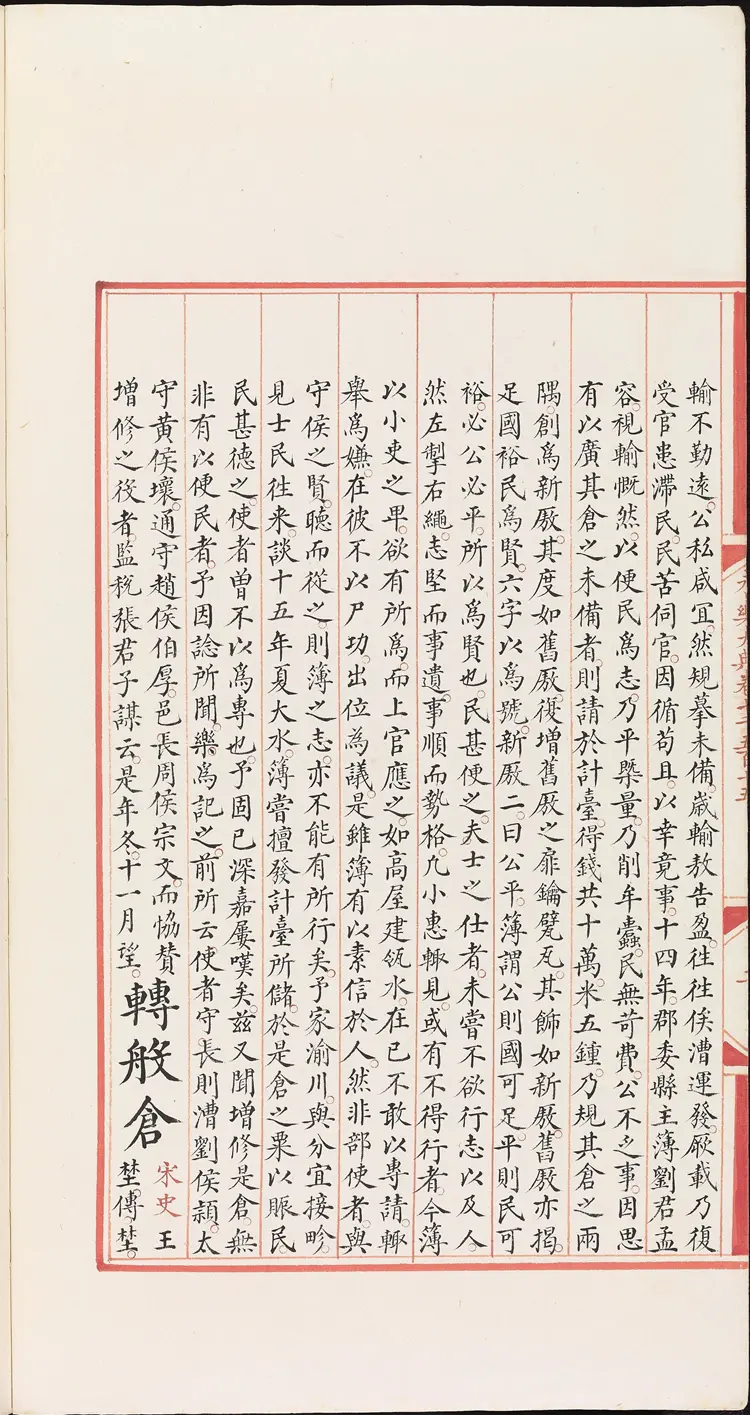 輸不勤遠。公私咸冝。然規摹未備。歲輸敖告盈。徃徃俟漕運發。厫載乃復
受官患滯民。民苦伺官。因循苟且。以幸竟事。十四年。郡委縣主簿劉君孟
容。視輸慨然。以便民爲志。乃平㮣量。乃削牟蠧。民無苛費。公不乏事。因思
有以廣其倉之未備者。則請於計臺。得錢共十萬。米五鍾。乃規其倉之兩
隅。創爲新厫。其度如舊厫。復增舊厫之扉鑰甓瓦。其飾如新厫。舊厫亦揭。
足國裕民爲賢。六字以爲號。新厫二。曰公平。簿謂公則國可足。平則民可
裕。必公必平。所以爲賢也。民甚便之。夫士之仕者。未嘗不欲行志以及人。
然左掣右繩。志堅而事遺。事順而勢格。凢小惠輙見。或有不得行者。今簿
以小吏之卑。欲有所爲。而上官應之。如高屋建瓴水。在已不敢以專請。輙
舉爲嫌。在彼不以尸功。出位為議。是雖簿有以素信於人。然非部使者與
守侯之賢。聴而從之。則簿之志。亦不能有所行矣。予家渝川。與分宜接畛。
見士民徃来。談十五年夏大水。簿嘗擅發計臺所儲。於是倉之粟以賑民。
民甚德之。使者曽不以爲專也。予固已深嘉屢嘆矣。兹又聞增修是倉。無
非有以便民者。予因諗所聞。樂爲記之。前所云。使者守長則漕劉侯頴。太
守黄侯壞。通守趙侯伯厚。邑長周侯宗文。而恊賛
增修之役者。監稅張君子謀云。是年冬。十一月望。
轉般倉
宋史王
埜傳。埜。
永樂大典卷七千五百十五